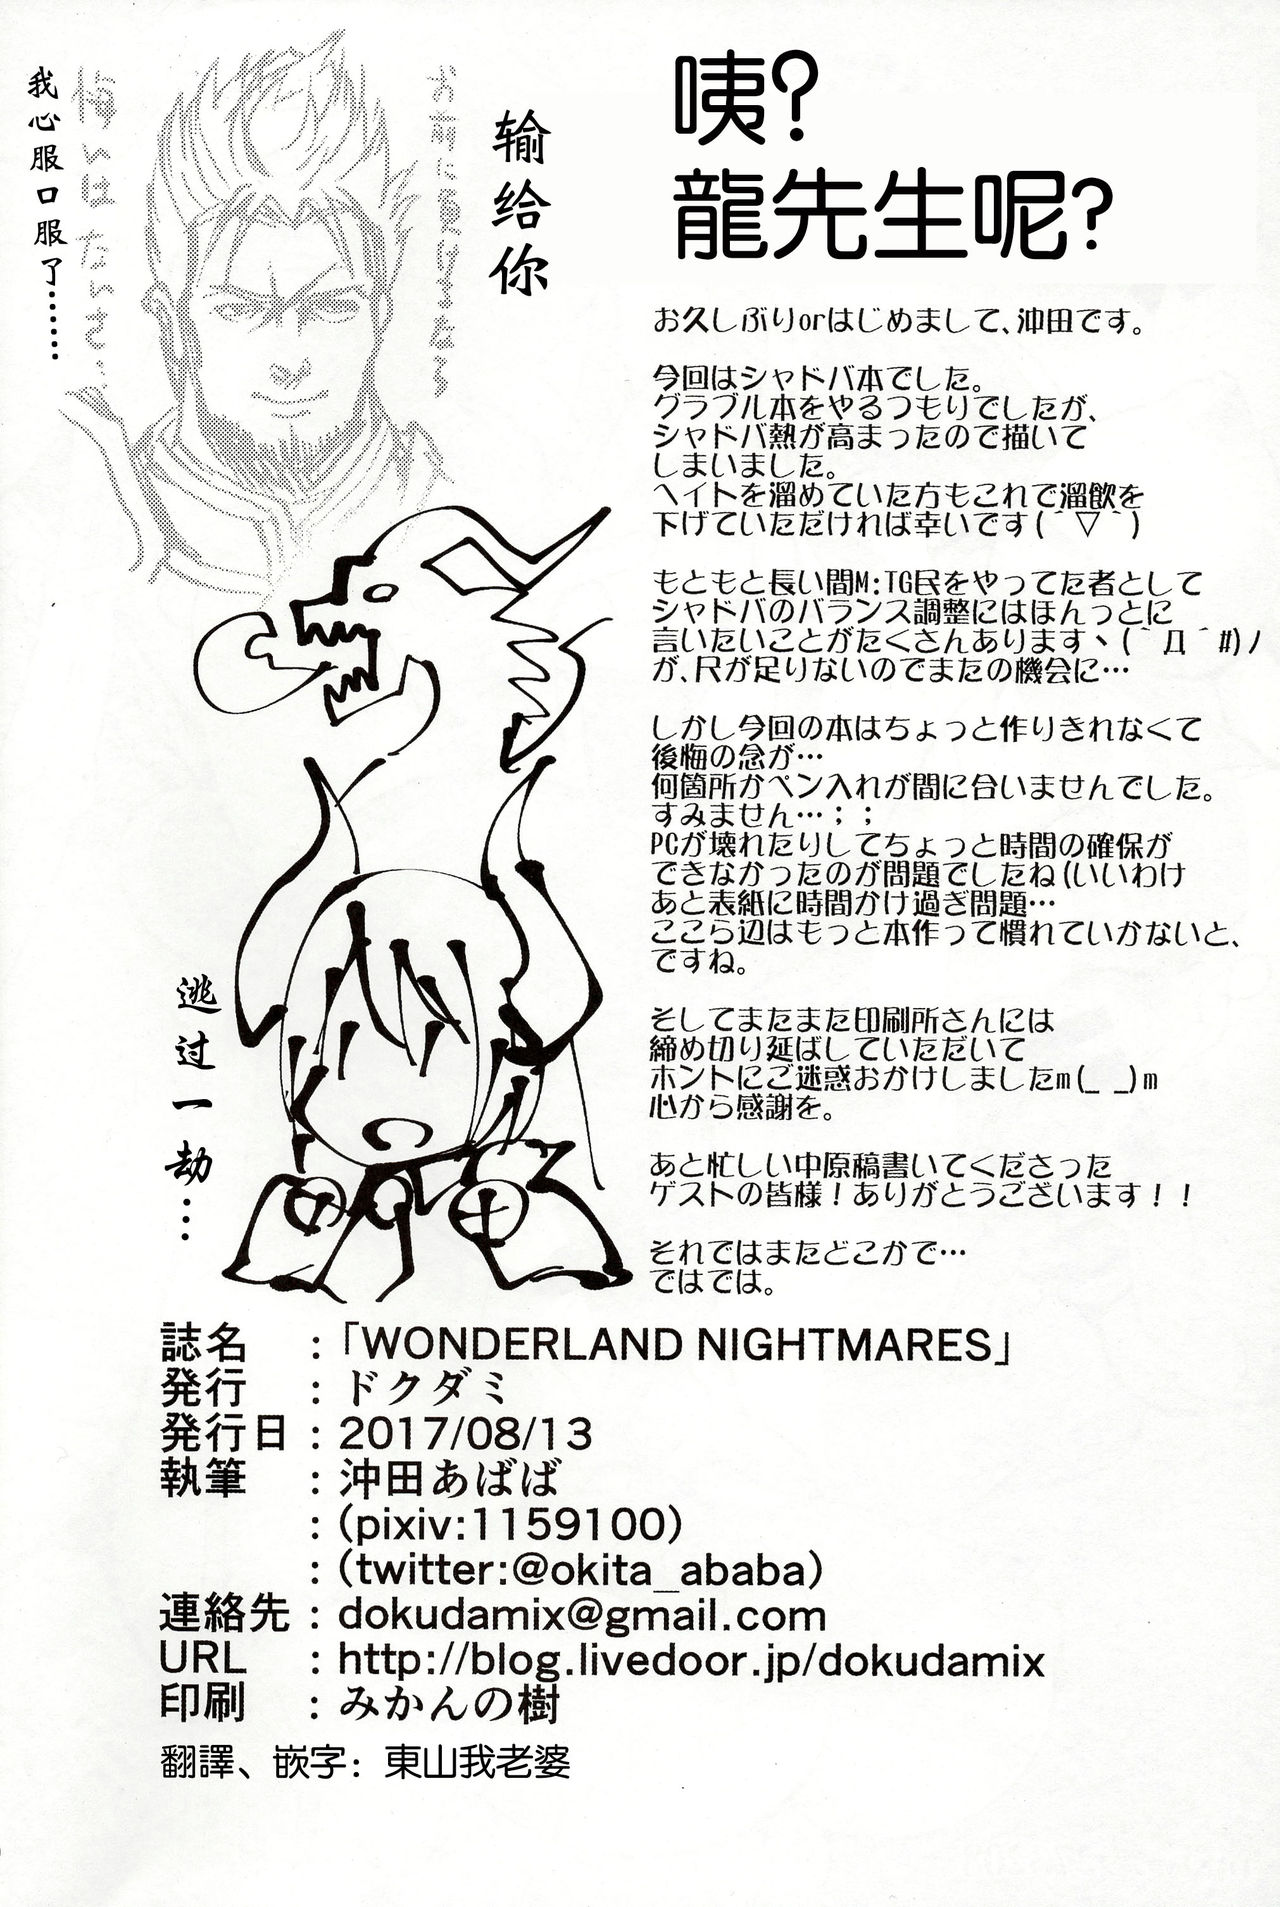 咦?
龍先生呢?
输给你
お前に負けるなら
悔いはないさ…
我心服口服了……
お久しぶりorはじめまして、沖田です。
今回はシャドバ本でした。
グラブル本をやるつもりでしたが、
シャドバ熱が高まったので描いて
しまいました。
ヘイトを溜めていた方もこれで溜飲を
下げていただければ幸いです(´▽`)
もともと長い間M:TG民をやってた者として
シャドバのバランス調整にはほんっとに
言いたいことがたくさんありますヽ(`Д´#)ﾉ
が、尺が足りないのでまたの機会に…
しかし今回の本はちょっと作りきれなくて
後悔の念が…
何箇所かペン入れが間に合いませんでした。
すみません…；；
PCが壊れたりしてちょっと時間の確保が
できなかったのが問題でしたね(いいわけ
あと表紙に時間かけ過ぎ問題…
ここら辺はもっと本作って慣れていかないと、
ですね。
そしてまたまた印刷所さんには
締め切り延ばしていただいて
ホントにご迷惑おかけしましたm(_ _)m
心から感謝を。
あと忙しい中原稿書いてくださった
ゲストの皆様！ありがとうございます！！
それではまたどこかで…
ではでは。
逃过一劫…
誌名 :「WONDERLAND NIGHTMARES」
発行 : ドクダミ
発行日 : 2017/08/13
執筆 : 沖田あばば
: (pixiv:1159100)
: (twitter:@okita_ababa)
連絡先 : dokudamix@gmail.com
URL : http://blog.livedoor.jp/dokudamix
印刷 : みかんの樹
翻譯、嵌字: 東山我老婆